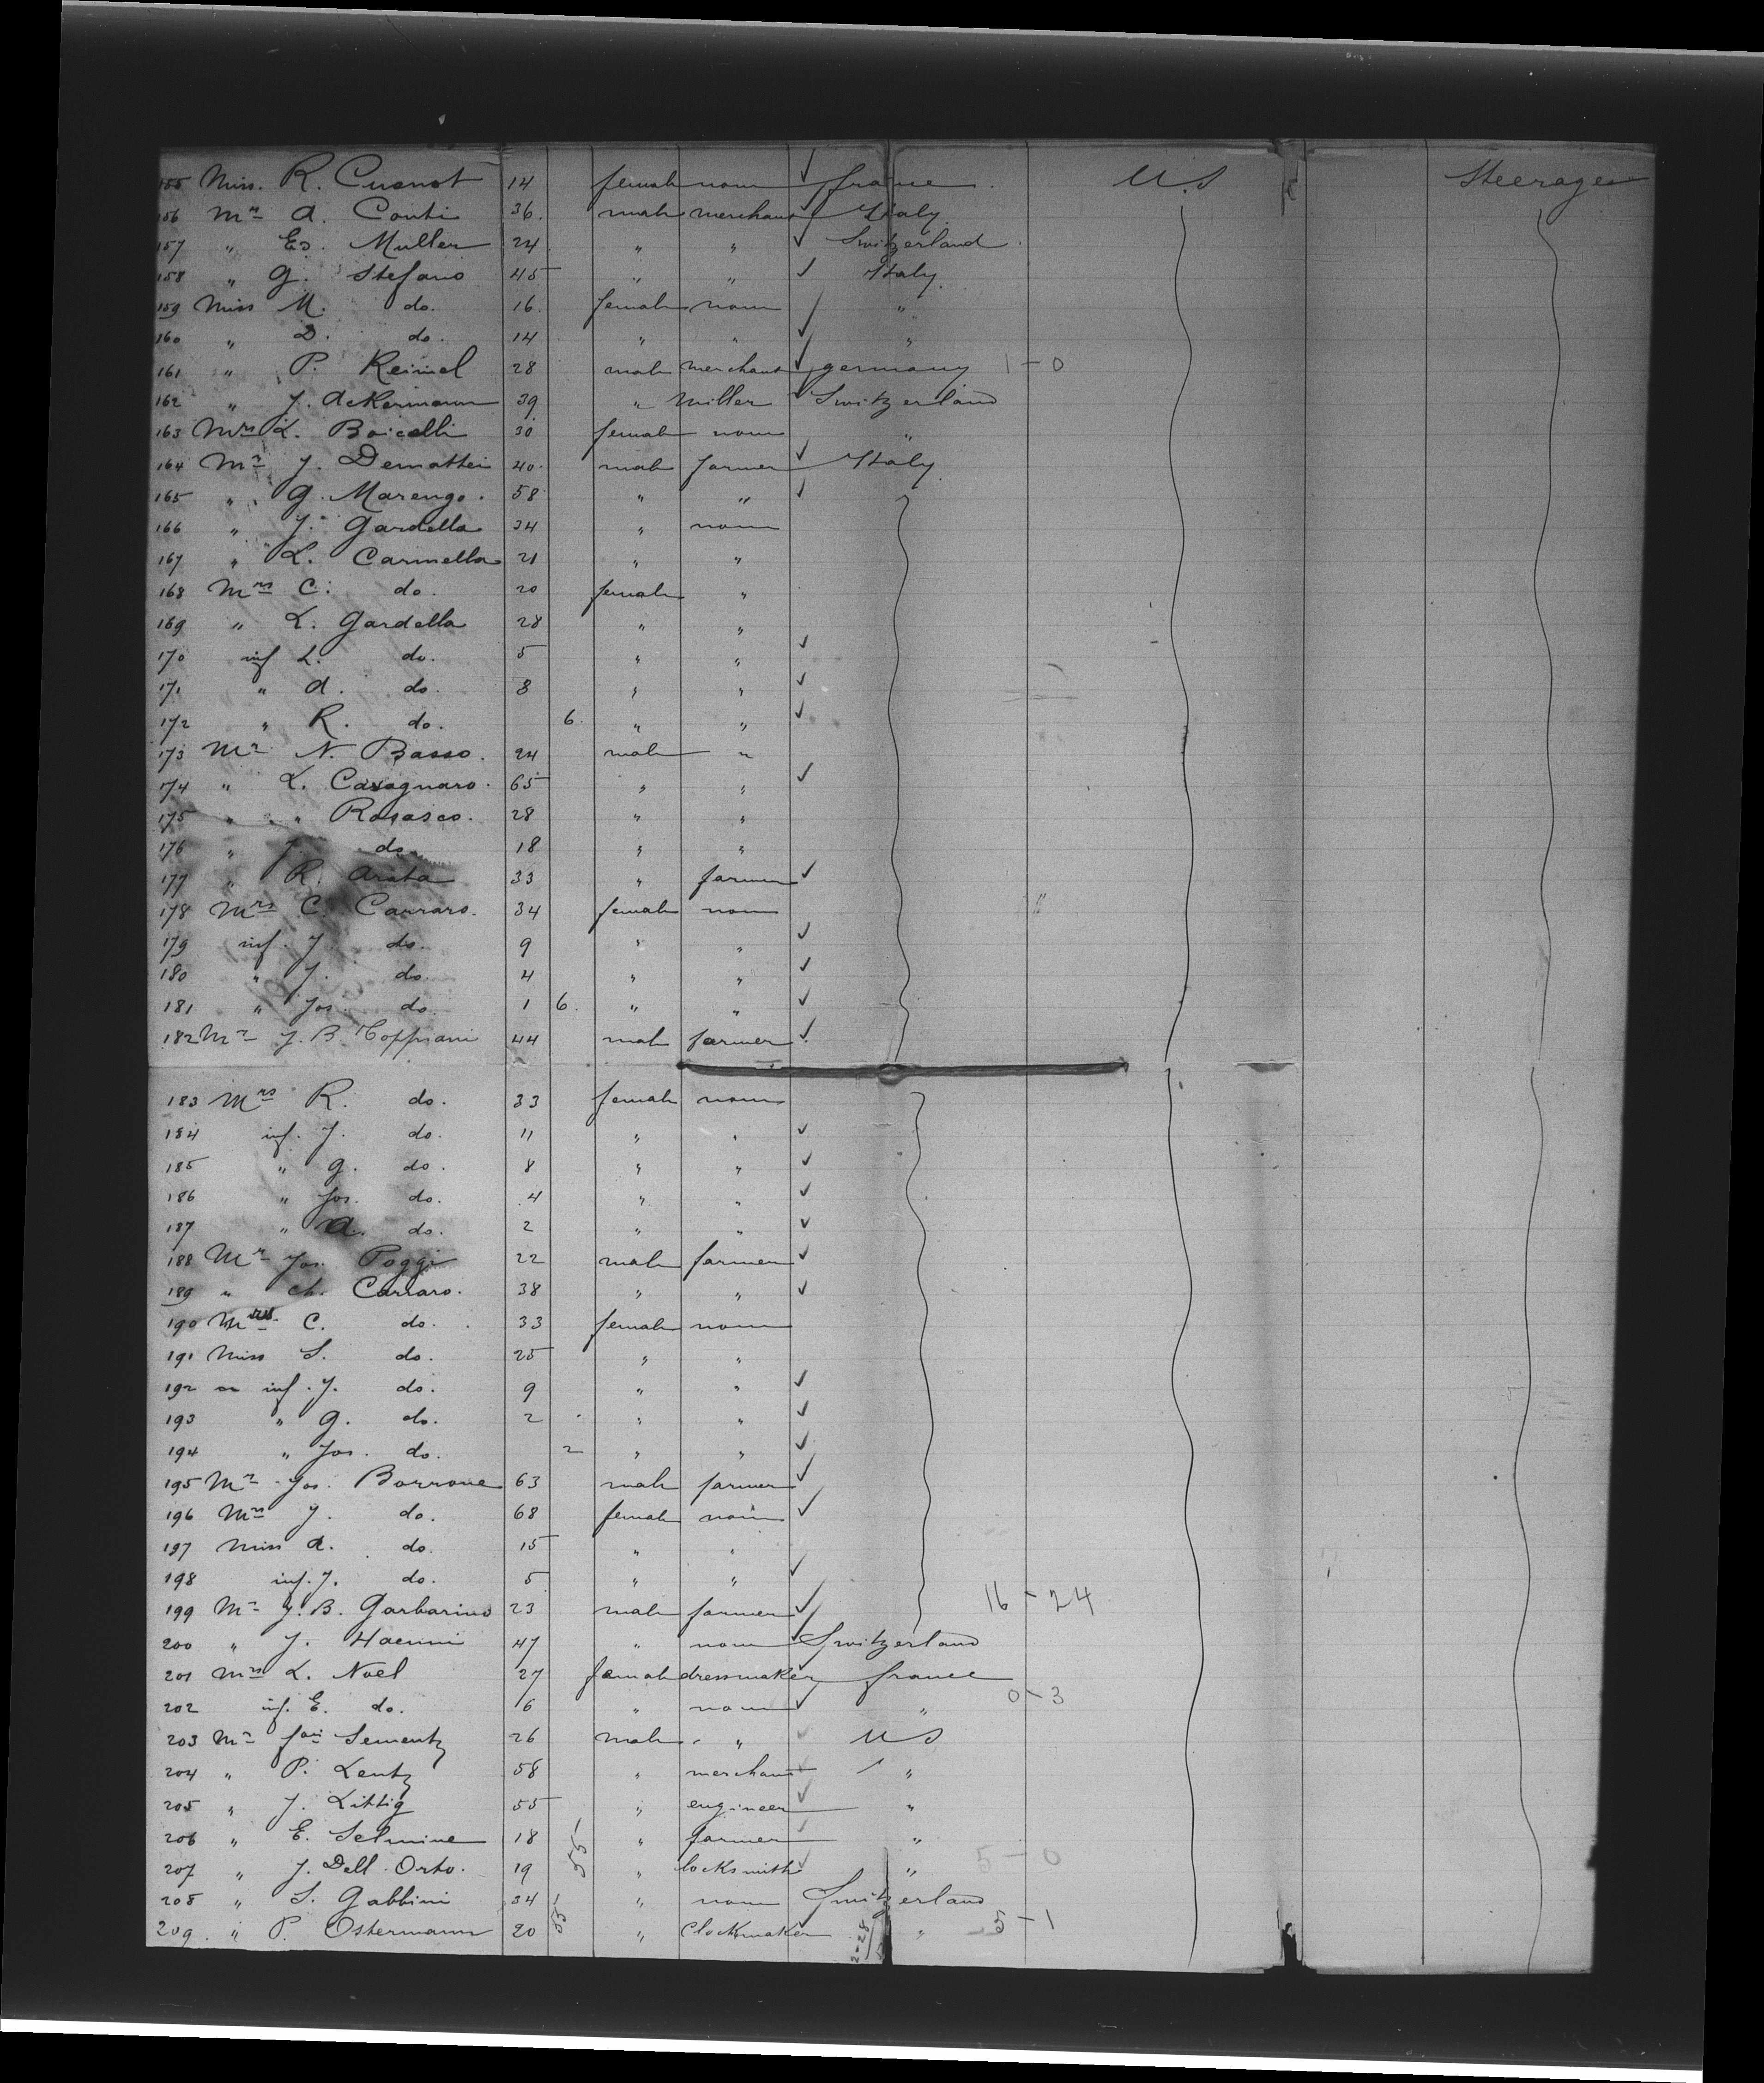 155 Miss. R. Cuenot 14 female none france U.S Steerage
156 Mr A. Conti 36. male merchant Italy
157 " Ed. Muller 24 " " Switzerland
158 " G. Stefano 45 " " Italy
159 Miss M. do. 16 female none "
160 " D. do. 14 " " "
161 " P. Reimel 28 male merchant germany 1-0
162 " J. Ackermann 39 " Miller Switzerland
163 Mrs L. Boicelli 30 female none "
164 Mr J. Demattei 40. male farmer Italy
165 " G. Marengo. 58 " "
166 " J. Gardella 34 " none
167 " L. Carmella 21 " "
168 Mrs C. do. 20 female "
169 " L. Gardella 28 " "
170 inf L. do. 5 " "
171 " A. do. 8 " "
172 " R. do. 6. " "
173 Mr N. Basso. 24 male "
174 " L. Casagnaro. 65 " "
175 " " Rosasco. 28 " "
176 " J. do. 18 " "
177 " R. Arata 33 " farmer
178 Mrs C. Carraro. 34 female none
179 inf. J. do. 9 " "
180 " J. do. 4 " "
181 " Jos. do. 1 6. " "
182 Mr J. B. Toppiani 44 male farmer
183 Mrs R. do. 33 female none
184 inf. J. do. 11 " "
185 " G. do. 8 " "
186 " Jos. do. 4 " "
187 " A. do. 2 " "
188 Mr Jos. Poggi 22 male farmer
189 " Ch. Carraro. 38 " "
190 Mrs C. do. 33 female none
191 Miss S. do. 25 " "
192 inf. J. do. 9 " "
193 " G. do. 2 " "
194 " Jos. do. 2 " "
195 Mr Jos. Borrone 63 male farmer
196 Mrs J. do. 68 female none
197 Miss A. do. 15 " "
198 inf. J. do. 5 " "
199 Mr J. B. Garbarino 23 male farmer 16-24
200 " J. Haenni 47 " none Switzerland
201 Mrs L. Noel 27 female dressmaker france
202 inf. E. do. 6 " none " 0-3
203 Mr Sementz 26 male " U S
204 " P. Lentz 58 " merchant "
205 " J. Littig 55 " engineer "
206 " E. Selmine 18 " farmer "
207 " J. Dell-Orto. 19 " locksmith " 5-0
208 " S. Gabbini 34 " none Switzerland
209. " P. Ostermann 20 " Clockmaker " 5-1